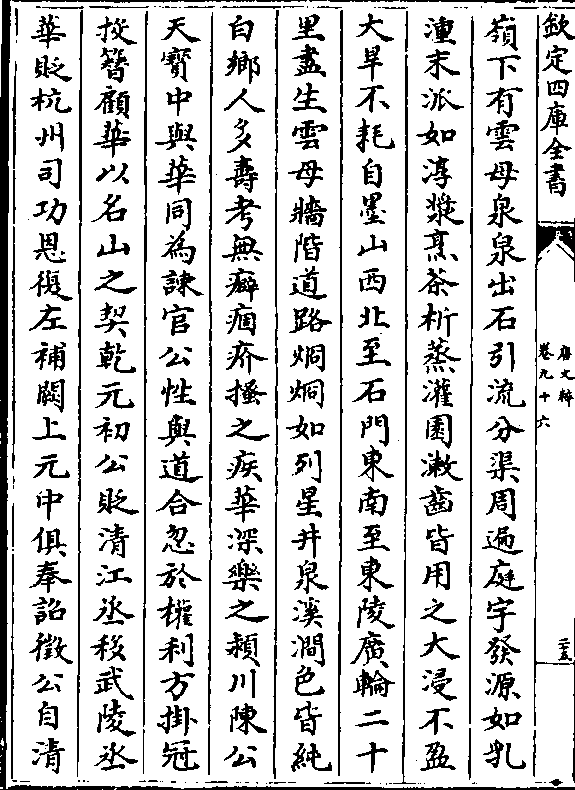 欽定四庫全書
唐文粹
卷九十六
二五
嶺下有雲母泉泉出石引流分渠周遍庭宇發源如乳
湩末派如淳漿烹茶析蒸灌園漱齒皆用之大浸不盈
大旱不耗自墨山西北至石門東南至東陵廣輪二十
里盡生雲母牆階道路烱烱如列星井泉溪澗色皆純
白鄉人多壽考無癖痼疥搔之疾華深樂之潁川陳公
天寶中與華同為諫官公性與道合忽於權利方掛冠
投簪顧華以名山之契乾元初公貶清江丞移武陵丞
華貶杭州司功恩復左補闕上元中俱奉詔徵公自清